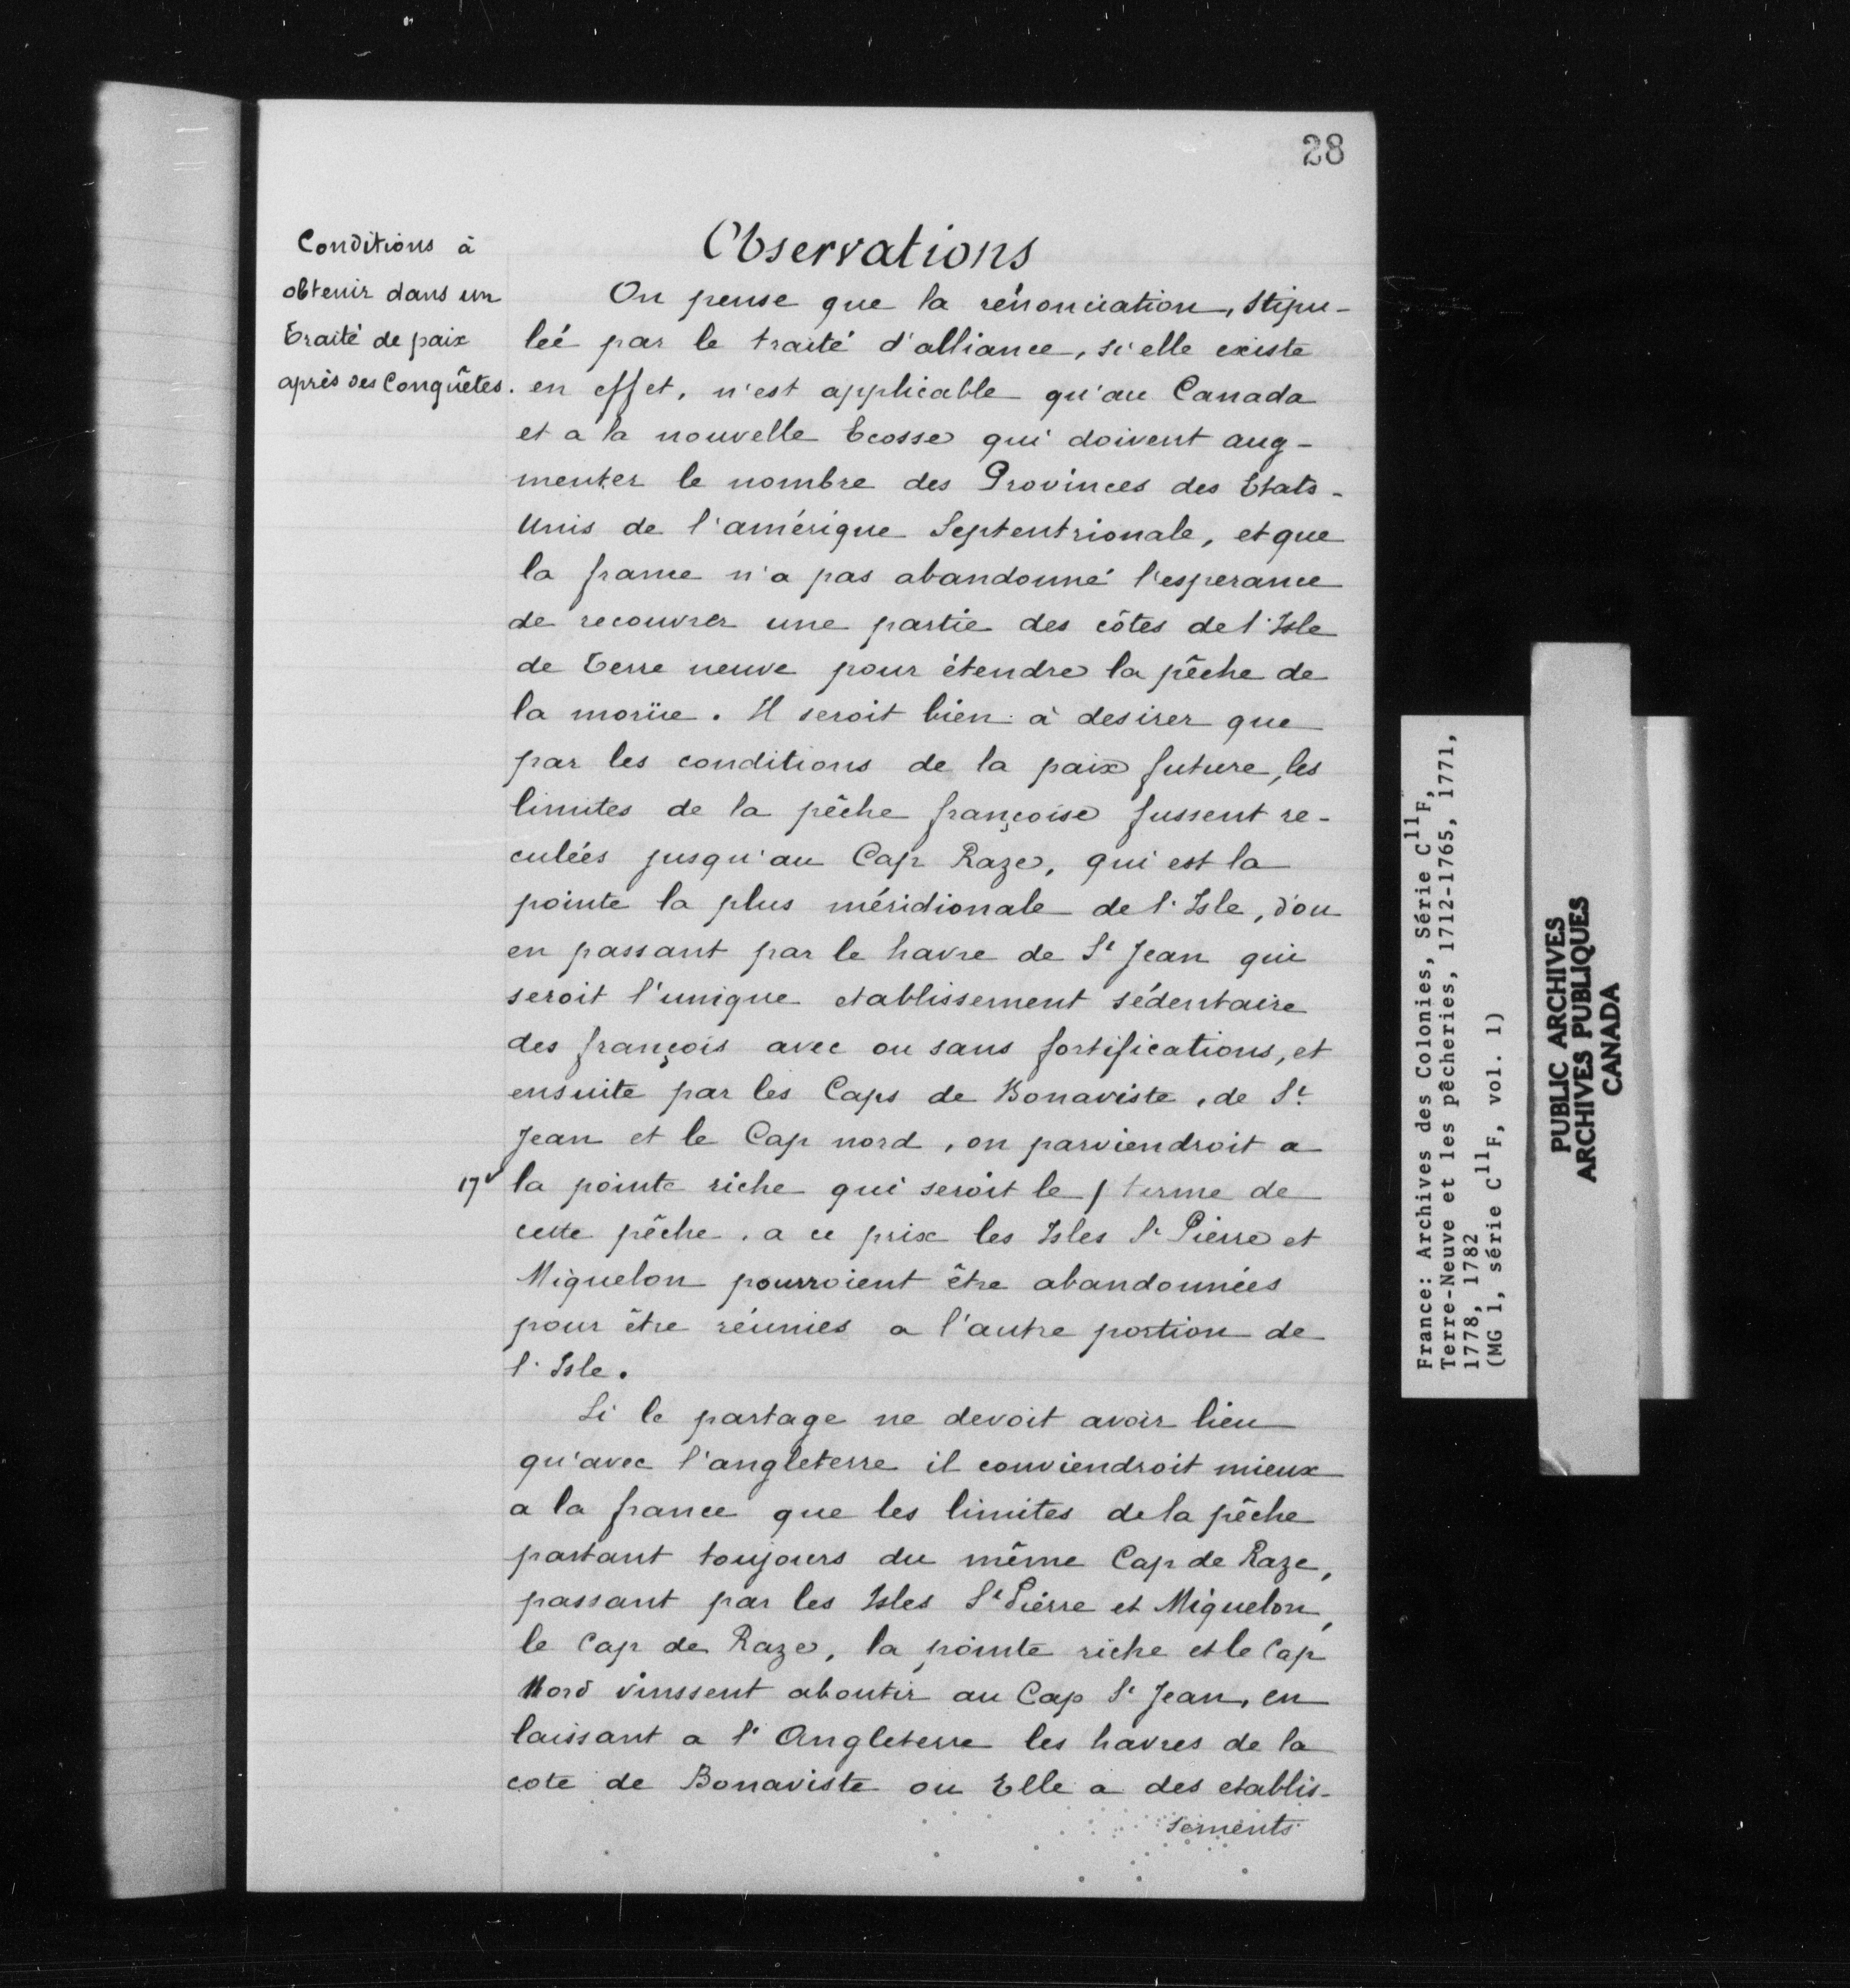 28
Conditions à
obtenir dans un
Traité de paix
après des Conquêtes.
Observations
On pense que la rénonciation, stipu-
leé par le traité d'alliance, si elle existe
en effet, n'est applicable qu'au Canada
et a la nouvelle Ecosse qui doivent aug-
menter le nombre des Provinces des Etats-
Unis de l'amérique Septentrionale, et que
la france n'a pas abandonné l'esperance
de recouvrer une partie des côtes de l'Isle
de Terre neuve pour étendre la pêche de
la morüe. Il seroit bien à desirer que
par les conditions de la paix future, les
limites de la pêche françoise fussent re-
culées jusqu'au Cap Raze, qui est la
pointe la plus méridionale de l'Isle, d'ou
en passant par le havre de St Jean qui
seroit l'unique etablissement sédentaire
des françois avec ou sans fortifications, et
ensuite par les Caps de Bonaviste, de St
Jean et le Cap nord, on parviendroit a
17v la pointe riche qui seroit le / terme de
cette pêche, a ce prix les Isles St Pierre et
Miquelon pourroient être abandonnées
pour être réunies a l'autre portion de
l'Isle.
Si le partage ne devoit avoir lieu
qu'avec l'angleterre il conviendroit mieux
a la france que les limites de la pêche
partant toujours du même Cap de Raze,
passant par les Isles St Pierre et Miquelon,
le Cap de Raze, la pointe riche et le Cap
Nord vinssent aboutir au Cap St Jean, en
laissant a l'Angleterre les havres de la
cote de Bonaviste ou Elle a des etablis-
sements
France: Archives des Colonies, Série C11F,
Terre-Neuve et les pêcheries, 1712-1765, 1771,
1778, 1782
(MG 1, série C11F, vol. 1)
PUBLIC ARCHIVES
ARCHIVES PUBLIQUES
CANADA